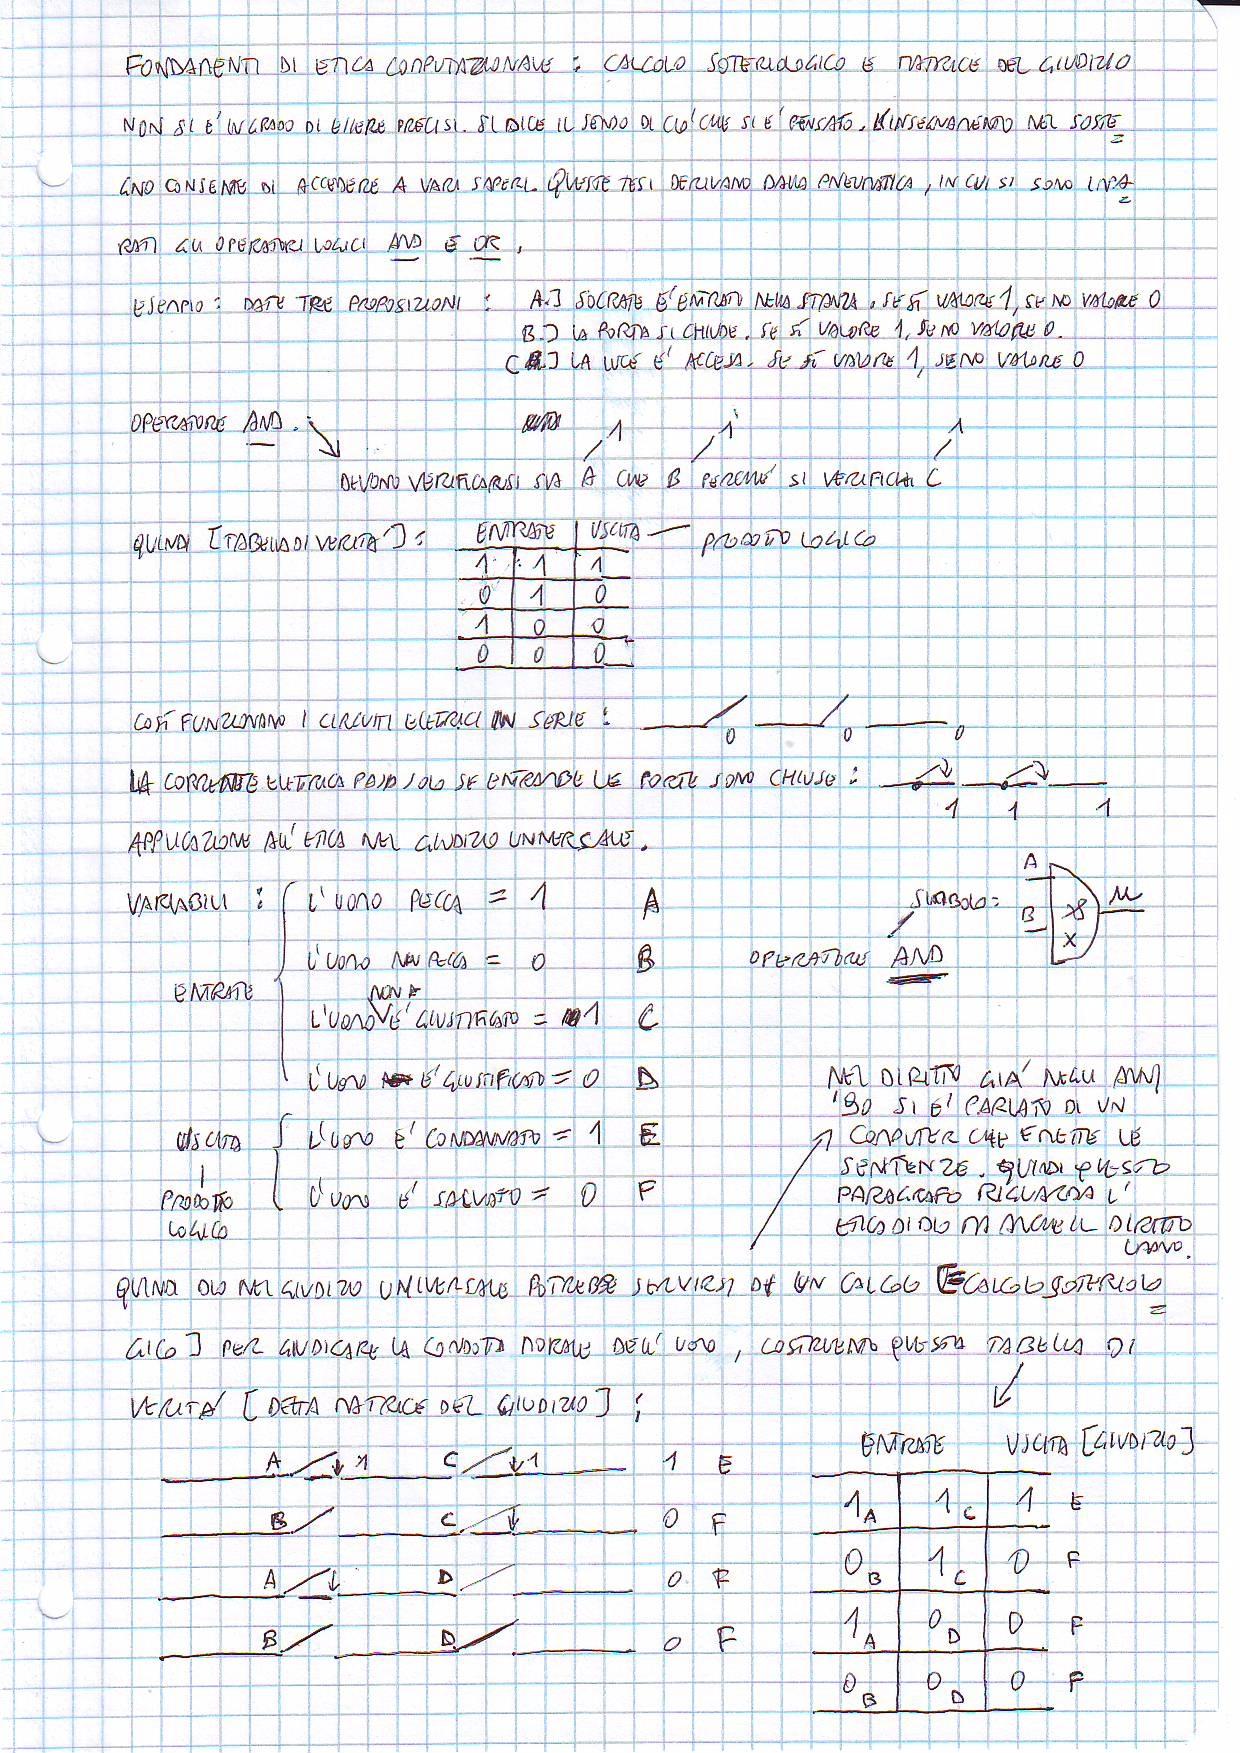 FONDAMENTI DI ETICA COMPUTAZIONALE : CALCOLO SOTERIOLOGICO E MATRICE DEL GIUDIZIO
NON SI E' IN GRADO DI ESSERE PRECISI. SI DICE IL SENSO DI CIO' CHE SI E' PENSATO. L'INSEGNAMENTO NEL SOSTE
GNO CONSENTE DI ACCEDERE A VARI SAPERI. QUESTE TESI DERIVANO DALLA PNEUMATICA, IN CUI SI SONO IMPA
RATI GLI OPERATORI LOGICI AND E OR.
ESEMPIO : DATE TRE PROPOSIZIONI : A.] SOCRATE E' ENTRATO NELLA STANZA. SE SÌ VALORE 1, SE NO VALORE 0
B.] LA PORTA SI CHIUDE. SE SÌ VALORE 1, SE NO VALORE 0.
C.] LA LUCE E' ACCESA. SE SÌ VALORE 1, SE NO VALORE 0
OPERATORE AND. : 1 1 1
DEVONO VERIFICARSI SIA A CHE B PERCHE' SI VERIFICHI C
QUINDI [TABELLA DI VERITA'] : ENTRATE USCITA PRODOTTO LOGICO
1 1 1
0 1 0
1 0 0
0 0 0
COSÌ FUNZIONANO I CIRCUITI ELETTRICI IN SERIE : 0 0 0
LA CORRENTE ELETTRICA PASSA SOLO SE ENTRAMBE LE PORTE SONO CHIUSE :
1 1 1
APPLICAZIONE ALL'ETICA NEL GIUDIZIO UNIVERSALE.
VARIABILI : L'UOMO PECCA = 1 A
SIMBOLO = A B & X M
L'UOMO NON PECCA = 0 B OPERATORE AND
ENTRATE
NON A
L'UOMO V E' GIUSTIFICATO = 1 C
L'UOMO E' GIUSTIFICATO = 0 D
NEL DIRITTO GIA' NEGLI ANNI
'90 SI E' PARLATO DI UN
COMPUTER CHE EMETTE LE
SENTENZE. QUINDI QUESTO
PARAGRAFO RIGUARDA L'
ETICA DI DIO MA ANCHE IL DIRITTO
UMANO.
USCITA L'UOMO E' CONDANNATO = 1 E
PRODOTTO
LOGICO
L'UOMO E' SALVATO = 0 F
QUINDI DIO NEL GIUDIZIO UNIVERSALE POTREBBE SERVIRSI DI UN CALCOLO [CALCOLO SOTERIOLO
GICO] PER GIUDICARE LA CONDOTTA MORALE DELL'UOMO, COSTRUENDO QUESTA TABELLA DI
VERITA' [DETTA MATRICE DEL GIUDIZIO] :
A 1 C 1 1 E
B C 0 F
A D 0 F
B D 0 F
ENTRATE USCITA [GIUDIZIO]
1A 1C 1 E
0B 1C 0 F
1A 0D 0 F
0B 0D 0 F